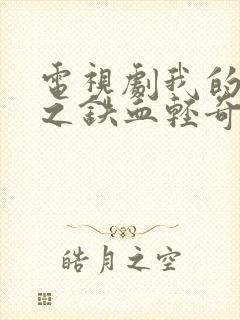 電視劇我的
之鉄血輕奇
皓月之空